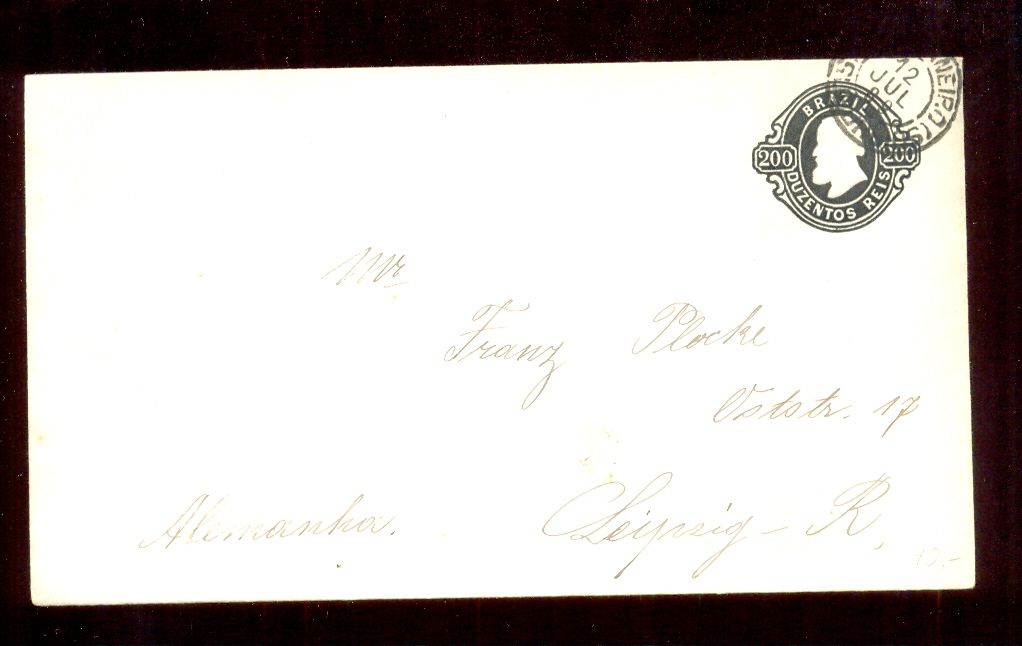 12
JUL
BRAZIL
200 200
DUZENTOS REIS
Mr
Franz Plocke
Oststr. 17
Leipzig - R.
Alemanha.
10,-